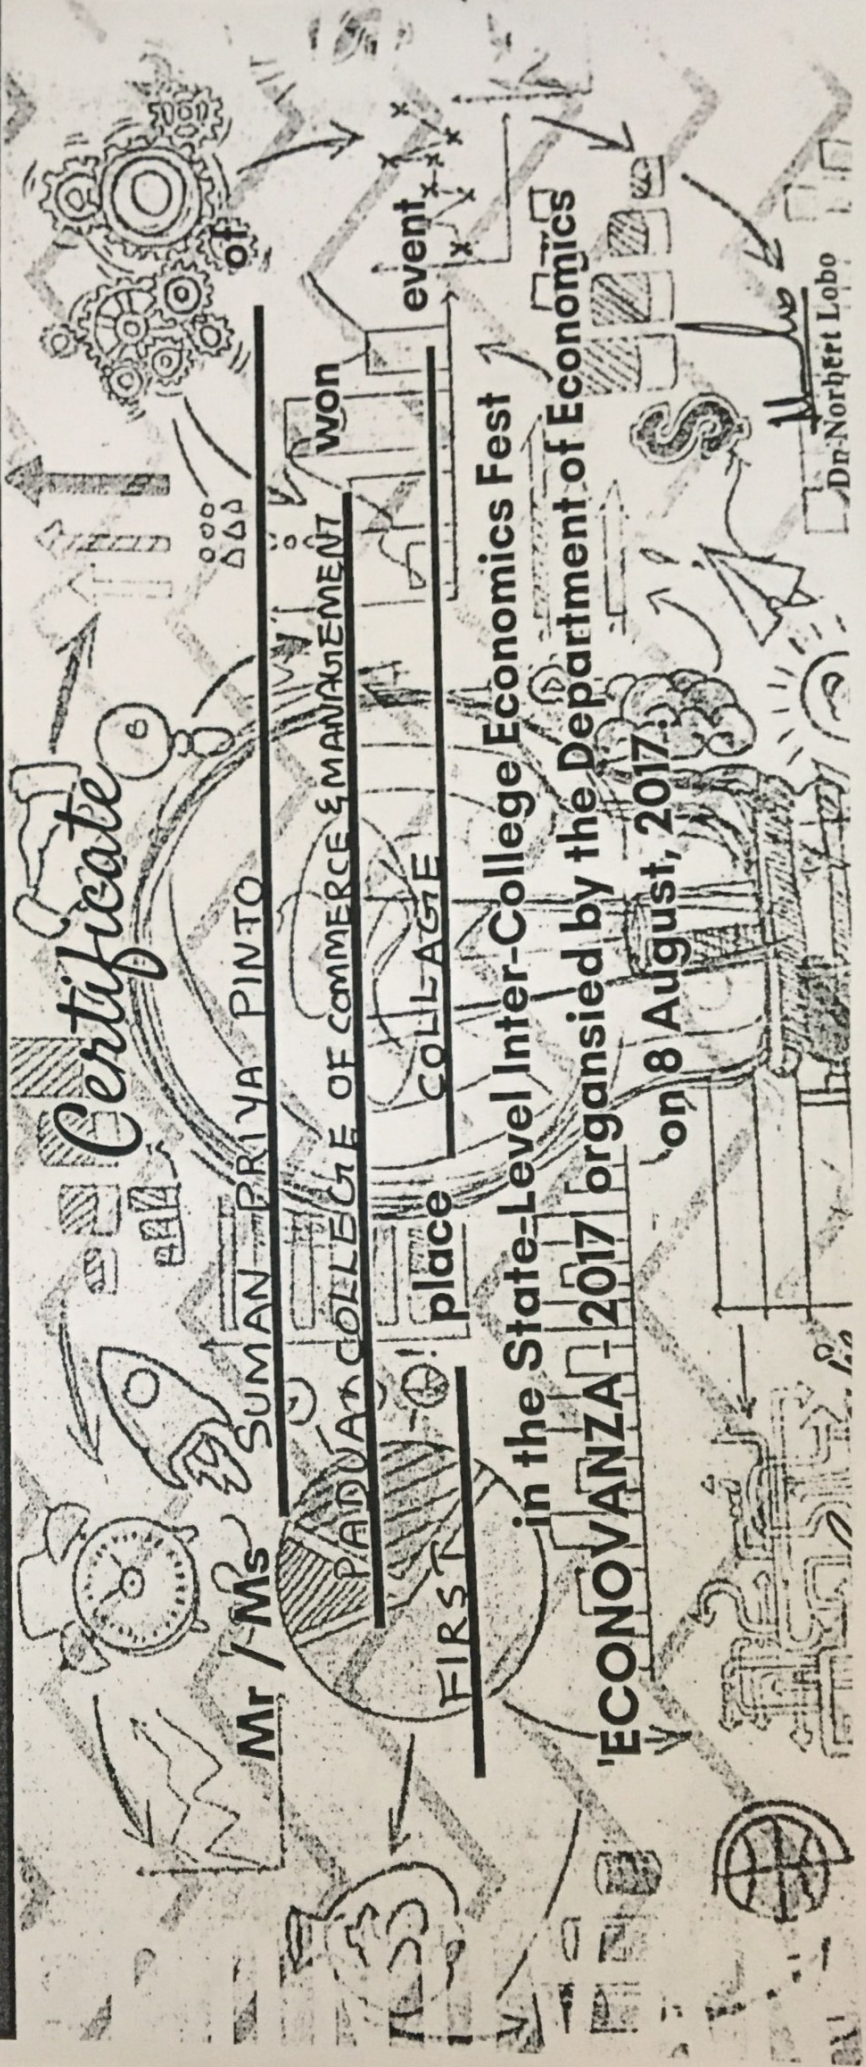 Certificate
Mr / Ms SUMAN PRIYA PINTO of
PADUA COLLEGE OF COMMERCE & MANAGEMENT won
FIRST place COLLAGE event
in the State-Level Inter-College Economics Fest
'ECONOVANZA - 2017' organsied by the Department of Economics
on 8 August, 2017.
Dr Norbert Lobo